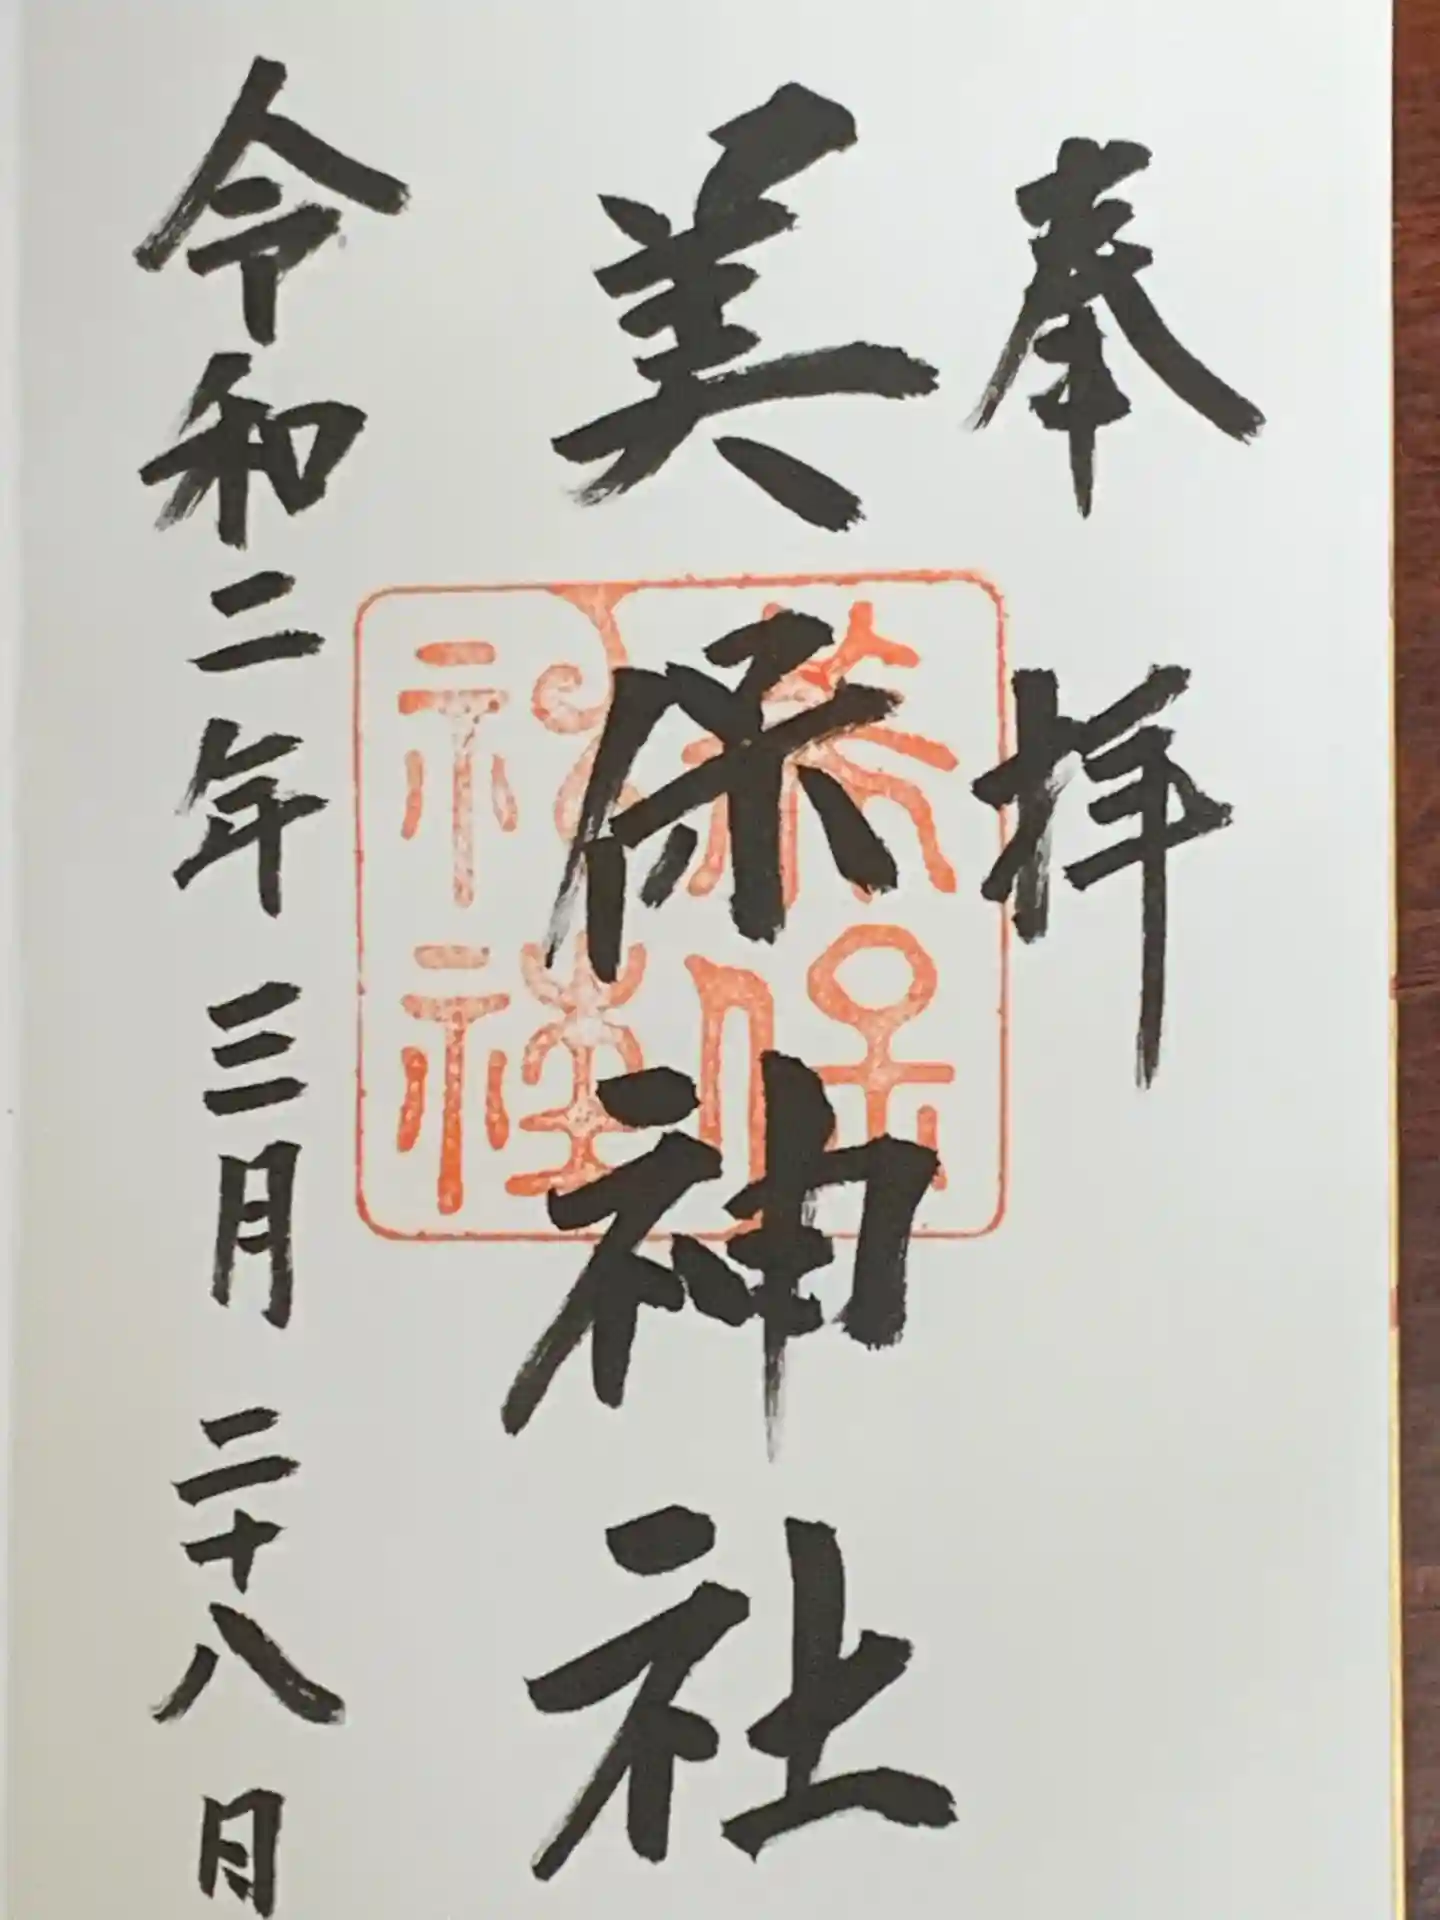 奉拝
美保神社
美保神社
令和二年三月二十八日